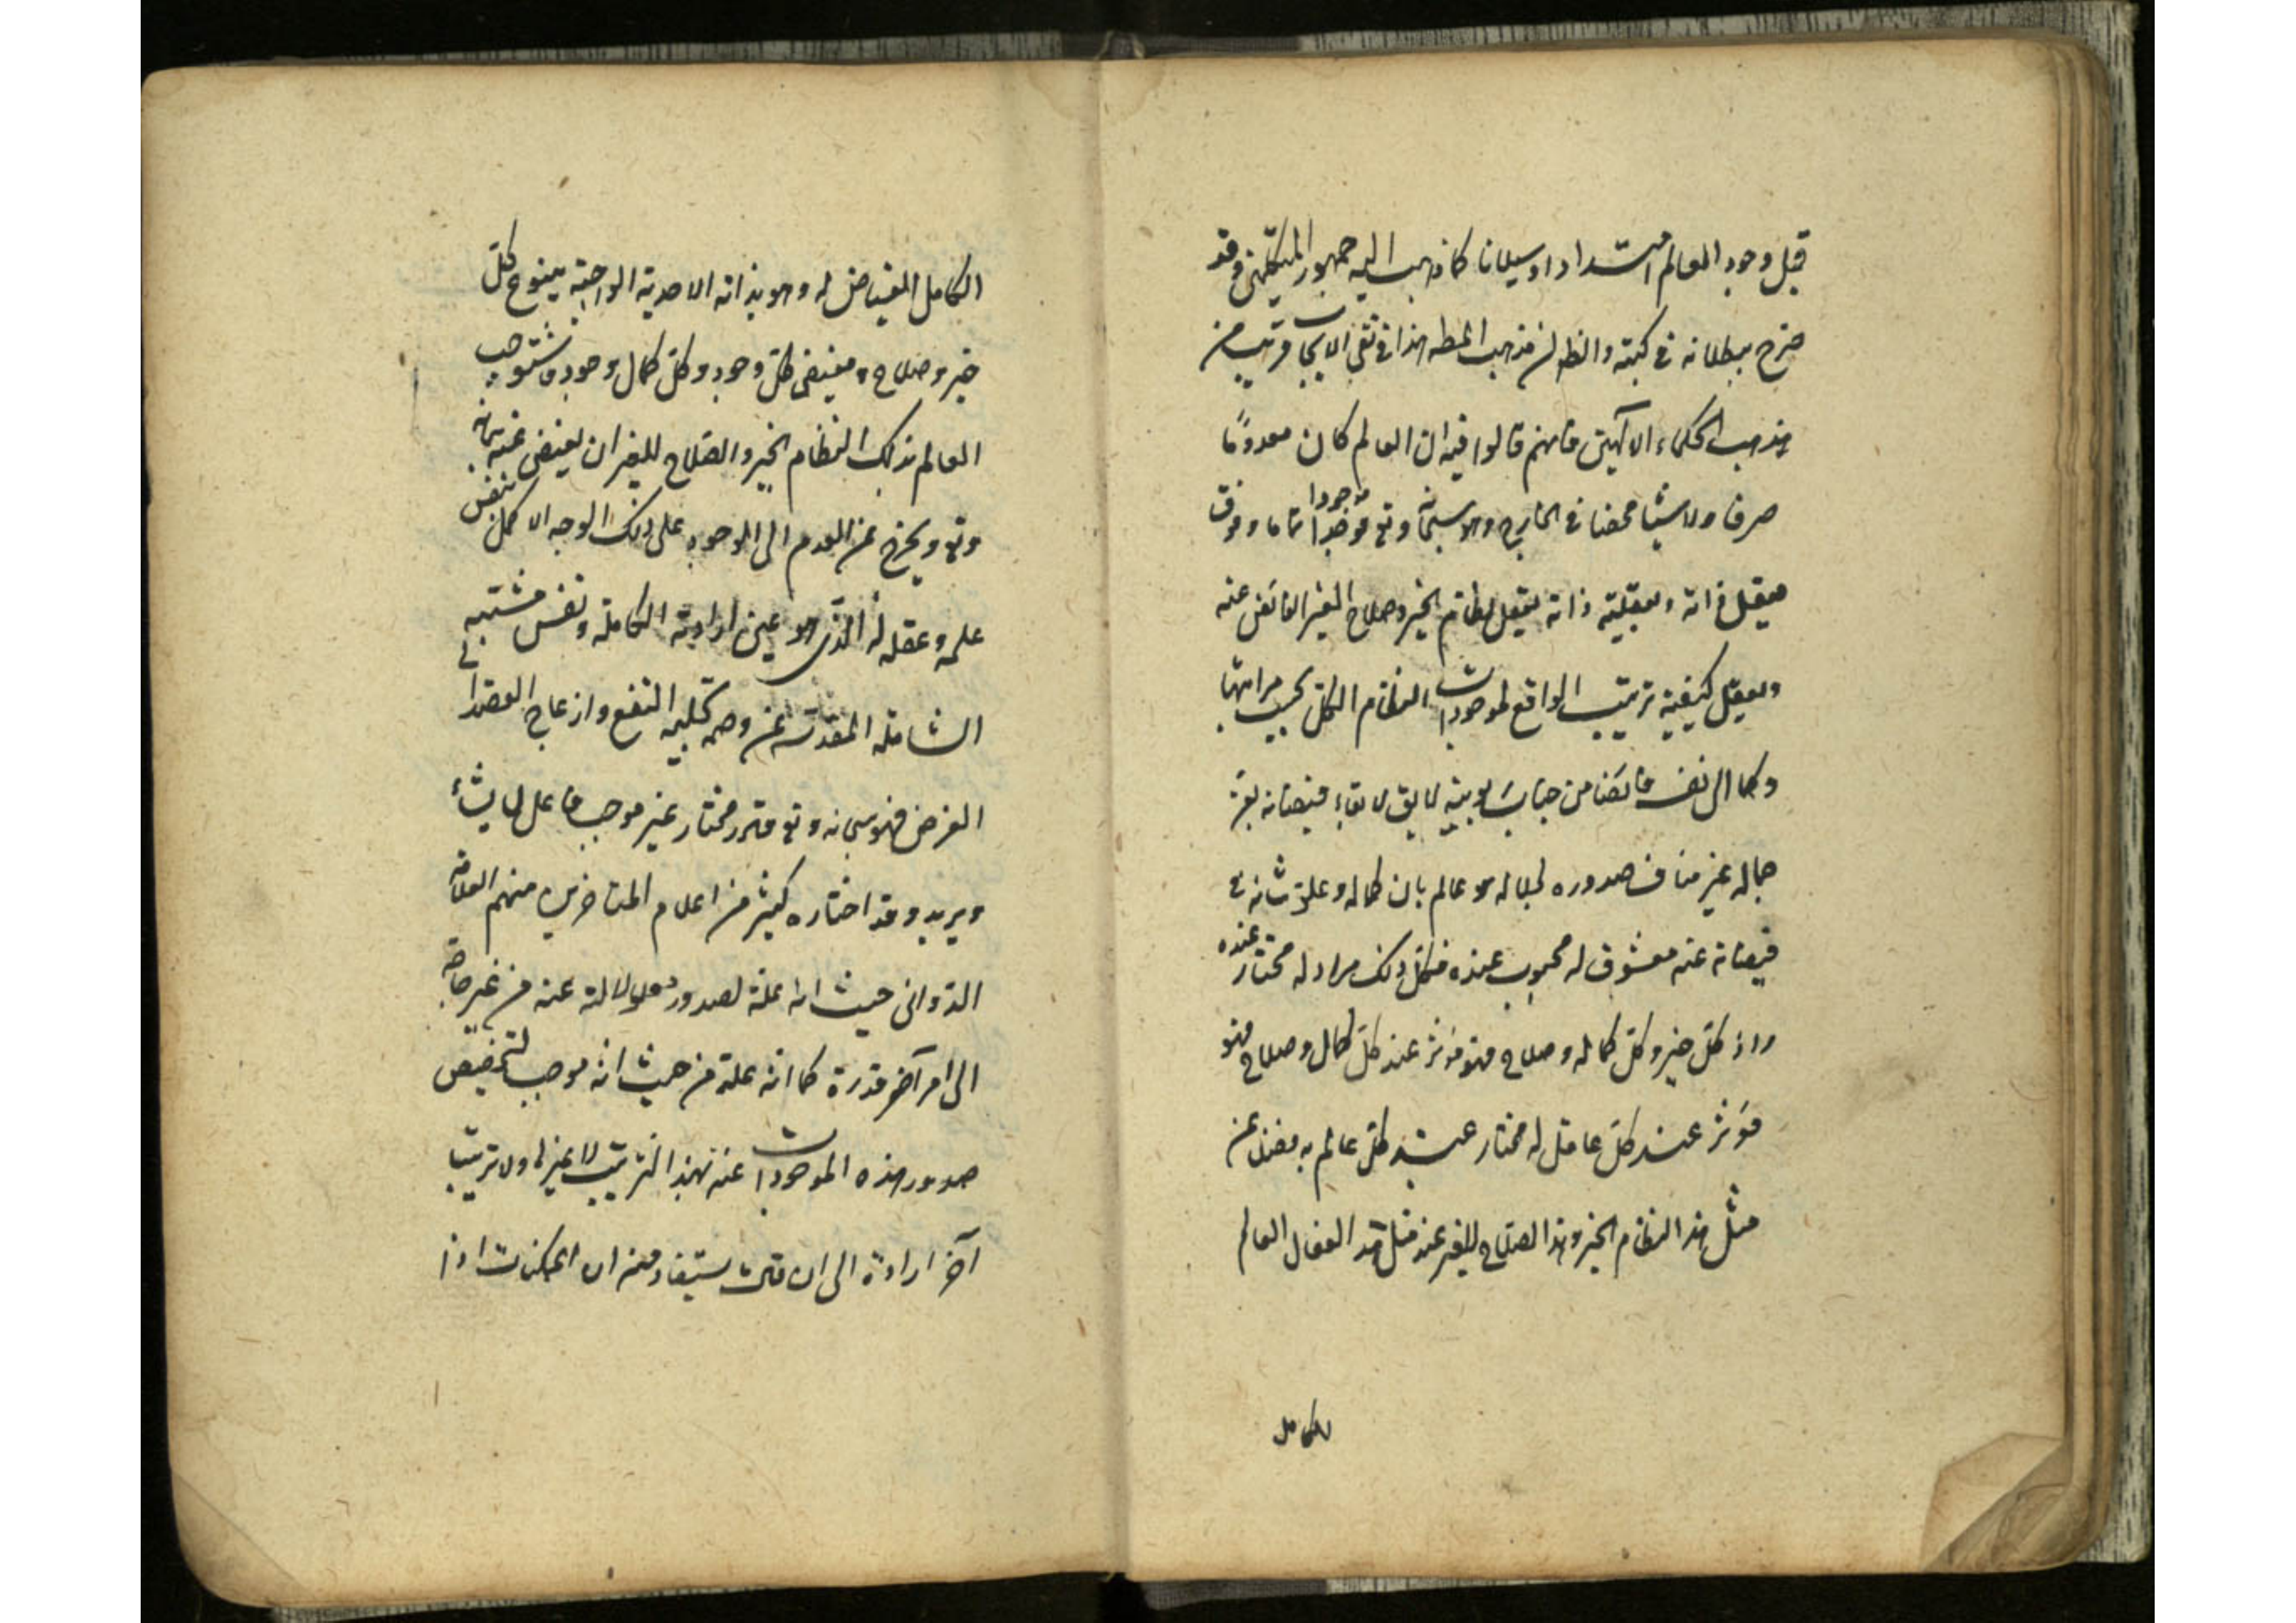 قبل وجود العالم امتدادا وسيلانا كما ذهب اليه جمهور المتكلمين وقد
صرح ببطلانه في كتبه والظ ان مذهب المط هذا في نفي الايجاب قريب من
مذهب الحكماء الالهيين فانهم قالوا فيه ان العالم كان معدوما
صرفا ولا شيئا محضا في الخارج وهو سبحانه وتع موجودا تاما وفوق
يعقل ذاته وبعقلية ذاته يعقل نظام الخير وصلاح الغير الفائض عنه
ويعقل كيفية ترتيب الواقع لموجودات النظام الكل بحسب مراتبها
وكمالاتها فائضا من جناب ربوبيته لايق لاتقاء فيضانه بعز
جماله غير مناف صدوره لجلاله هو عالم بان كماله وعلو شانه في
فيضانه عنه معشوق له محبوب عنده فكل ذلك مراد له مختار عنده
واذ كل خير وكل كماله وصلاح فهو مؤثر عند كل كمال وصلاح فهو
مؤثر عند كل عاقل له مختار عند كل عالم به فضلا عن
مثل هذا النظام الخير وهذا الصلاح للغير عند مثل هذا الفعال العالم
الكامل
الكامل الفياض له وهو بذاته الاحدية الواجبة ينبوع كل
خير وصلاح ومفيض كل وجود وكل كمال وجود فاستوجب
العالم بذلك النظام الخير والصلاح للغير ان يفيض عنه سبحانه
وتع ويخرج عن العدم الى الوجود على ذلك الوجه الاكمل بنفس
علمه وعقله له الذي هو عين ارادته الكاملة ونفس مشيته
الشاملة المقدسة عن وصمة تجليه النفع وازعاج القصد الى
الغرض فهو سبحانه وتع قادر مختار غير موجب فاعل لما يشاء
ويريد وقد اختاره كثير من اعلام المتاخرين منهم العلامة
الدواني حيث انه علة لصدور معلولاته عنه من غير حاجة
الى امر آخر قدرة كما انه علة من حيث انه موجب لتخصيص
صدور هذه الموجودات عنه بهذا الترتيب لا غيرها ولا ترتيب
آخر ارادة الى ان قلت يستفاد منه ان الممكنات اذا